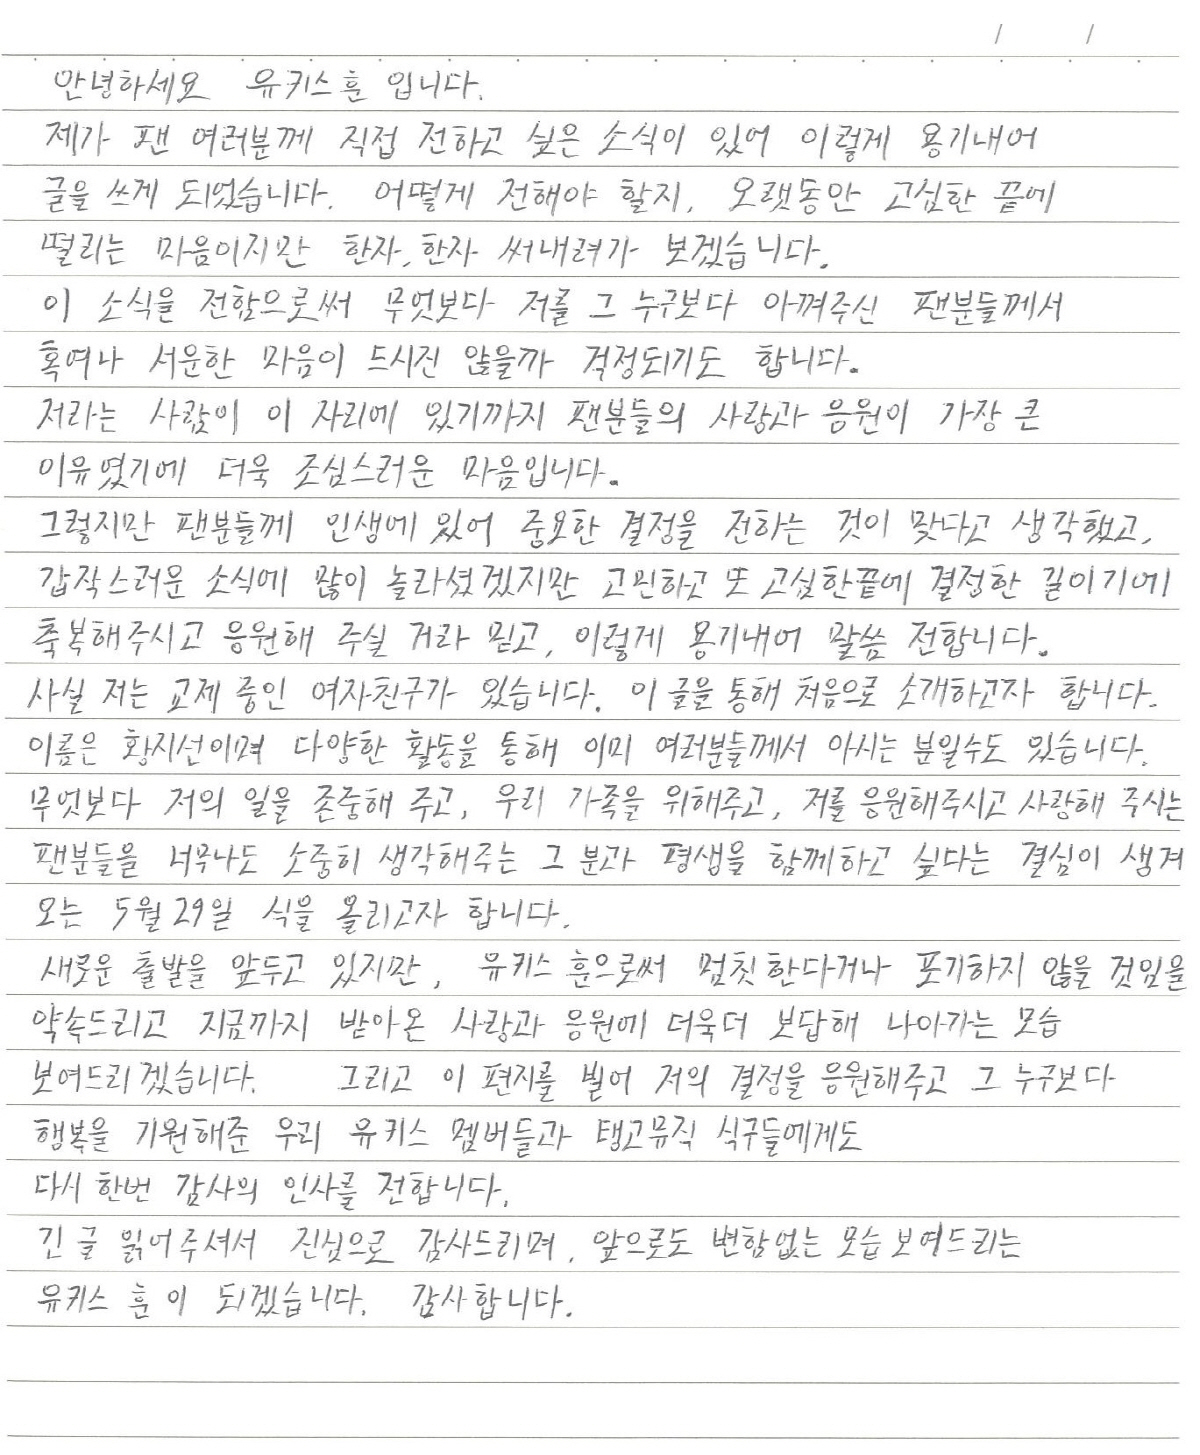 / /
안녕하세요 유키스훈 입니다.
제가 팬 여러분께 직접 전하고 싶은 소식이 있어 이렇게 용기내어
글을 쓰게 되었습니다. 어떻게 전해야 할지, 오랫동안 고심한 끝에
떨리는 마음이지만 한자, 한자 써내려가 보겠습니다.
이 소식을 전함으로써 무엇보다 저를 그 누구보다 아껴주신 팬분들께서
혹여나 서운한 마음이 드시진 않을까 걱정되기도 합니다.
저라는 사람이 이 자리에 있기까지 팬분들의 사랑과 응원이 가장 큰
이유였기에 더욱 조심스러운 마음입니다.
그렇지만 팬분들께 인생에 있어 중요한 결정을 전하는 것이 맞다고 생각했고,
갑작스러운 소식에 많이 놀라셨겠지만 고민하고 또 고심한끝에 결정한 길이기에
축복해주시고 응원해 주실 거라 믿고, 이렇게 용기내어 말씀 전합니다.
사실 저는 교제 중인 여자친구가 있습니다. 이 글을 통해 처음으로 소개하고자 합니다.
이름은 황지선이며 다양한 활동을 통해 이미 여러분들께서 아시는 분일수도 있습니다.
무엇보다 저의 일을 존중해 주고, 우리 가족을 위해주고, 저를 응원해주시고 사랑해 주시는
팬분들을 너무나도 소중히 생각해주는 그 분과 평생을 함께하고 싶다는 결심이 생겨
오는 5월 29일 식을 올리고자 합니다.
새로운 출발을 앞두고 있지만, 유키스 훈으로써 멈칫한다거나 포기하지 않을 것임을
약속드리고 지금까지 받아온 사랑과 응원에 더욱더 보답해 나아가는 모습
보여드리겠습니다. 그리고 이 편지를 빌어 저의 결정을 응원해주고 그 누구보다
행복을 기원해준 우리 유키스 멤버들과 탱고뮤직 식구들에게도
다시 한번 감사의 인사를 전합니다.
긴 글 읽어주셔서 진심으로 감사드리며, 앞으로도 변함없는 모습 보여드리는
유키스 훈이 되겠습니다. 감사합니다.